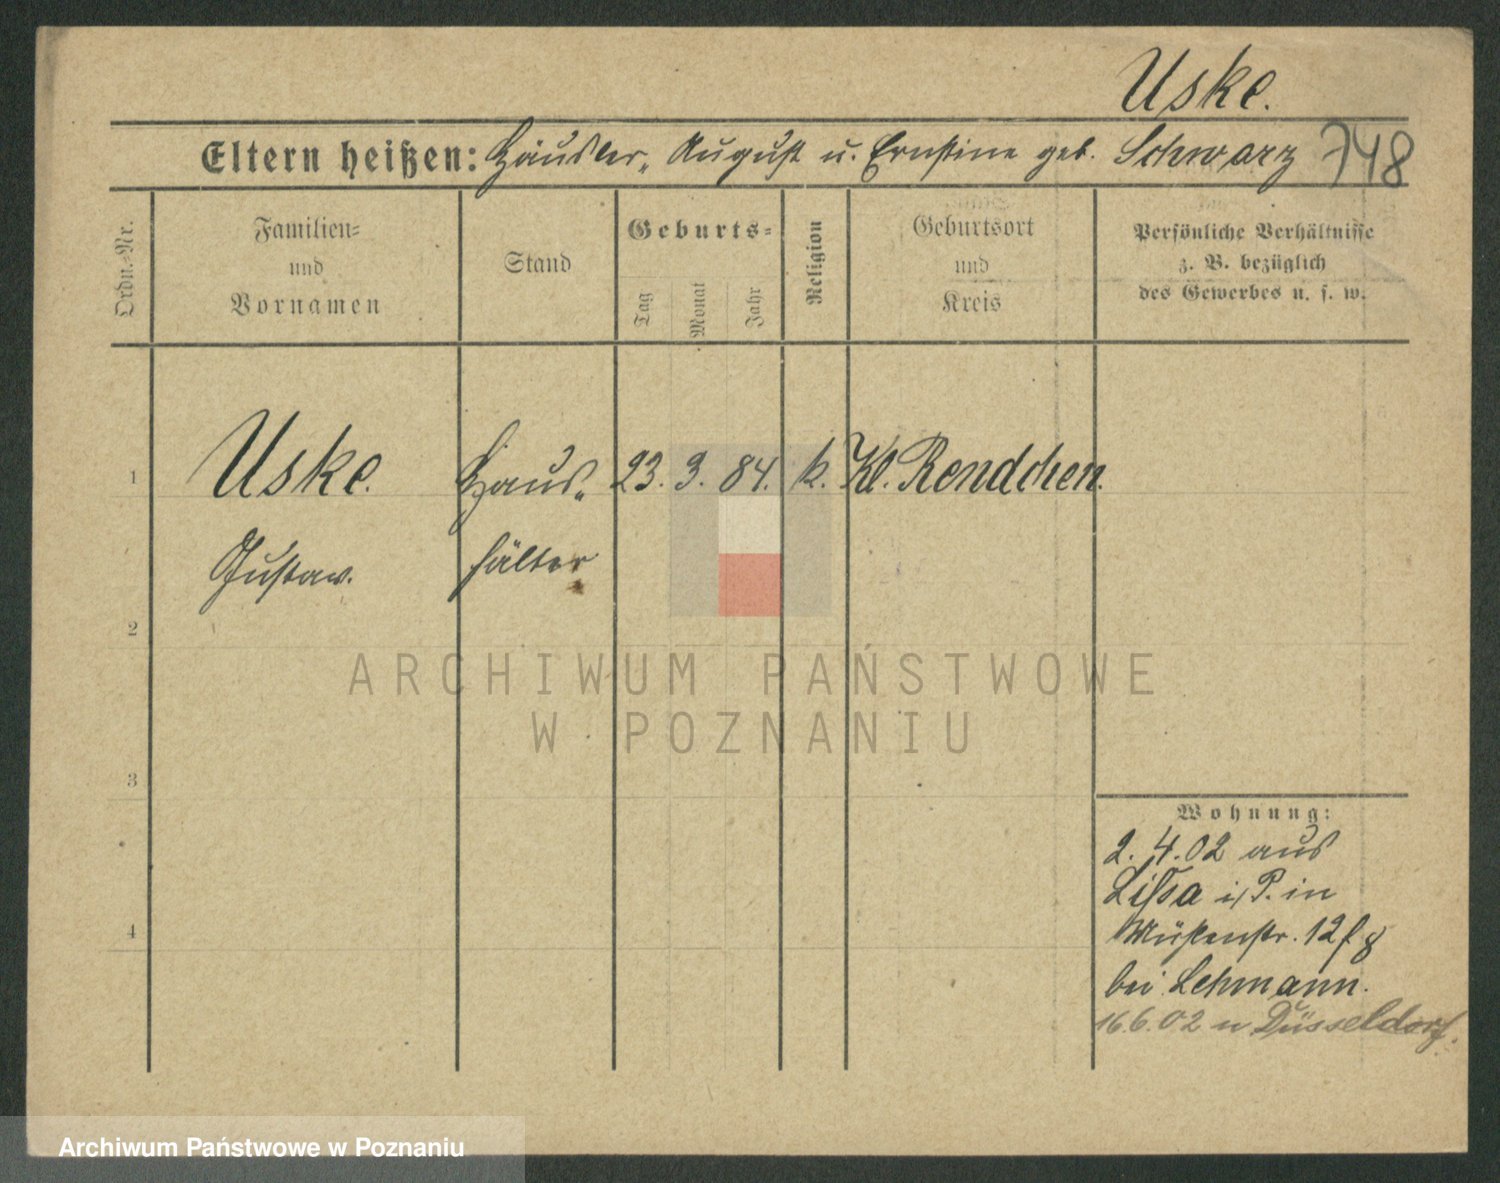 Uske.
Eltern heißen: Häusler, August u. Ernstine geb. Schwarz 748
Ordn.-Nr.
Familien-
und
Vornamen
Stand
Geburts-
Tag
Monat
Jahr
Religion
Geburtsort
und
Kreis
Persönliche Verhältnisse
z. B. bezüglich
des Gewerbes u. s. w.
1 Uske. Haus- 23. 3. 84. k. Kl. Rendchen.
Gustav. hälter
2
3
4
Wohnung:
2. 4. 02 aus
Lissa i/P. in
12
bei Lehmann.
16.6.02 n Düsseldorf.
ARCHIWUM PAŃSTWOWE
W POZNANIU
Archiwum Państwowe w Poznaniu